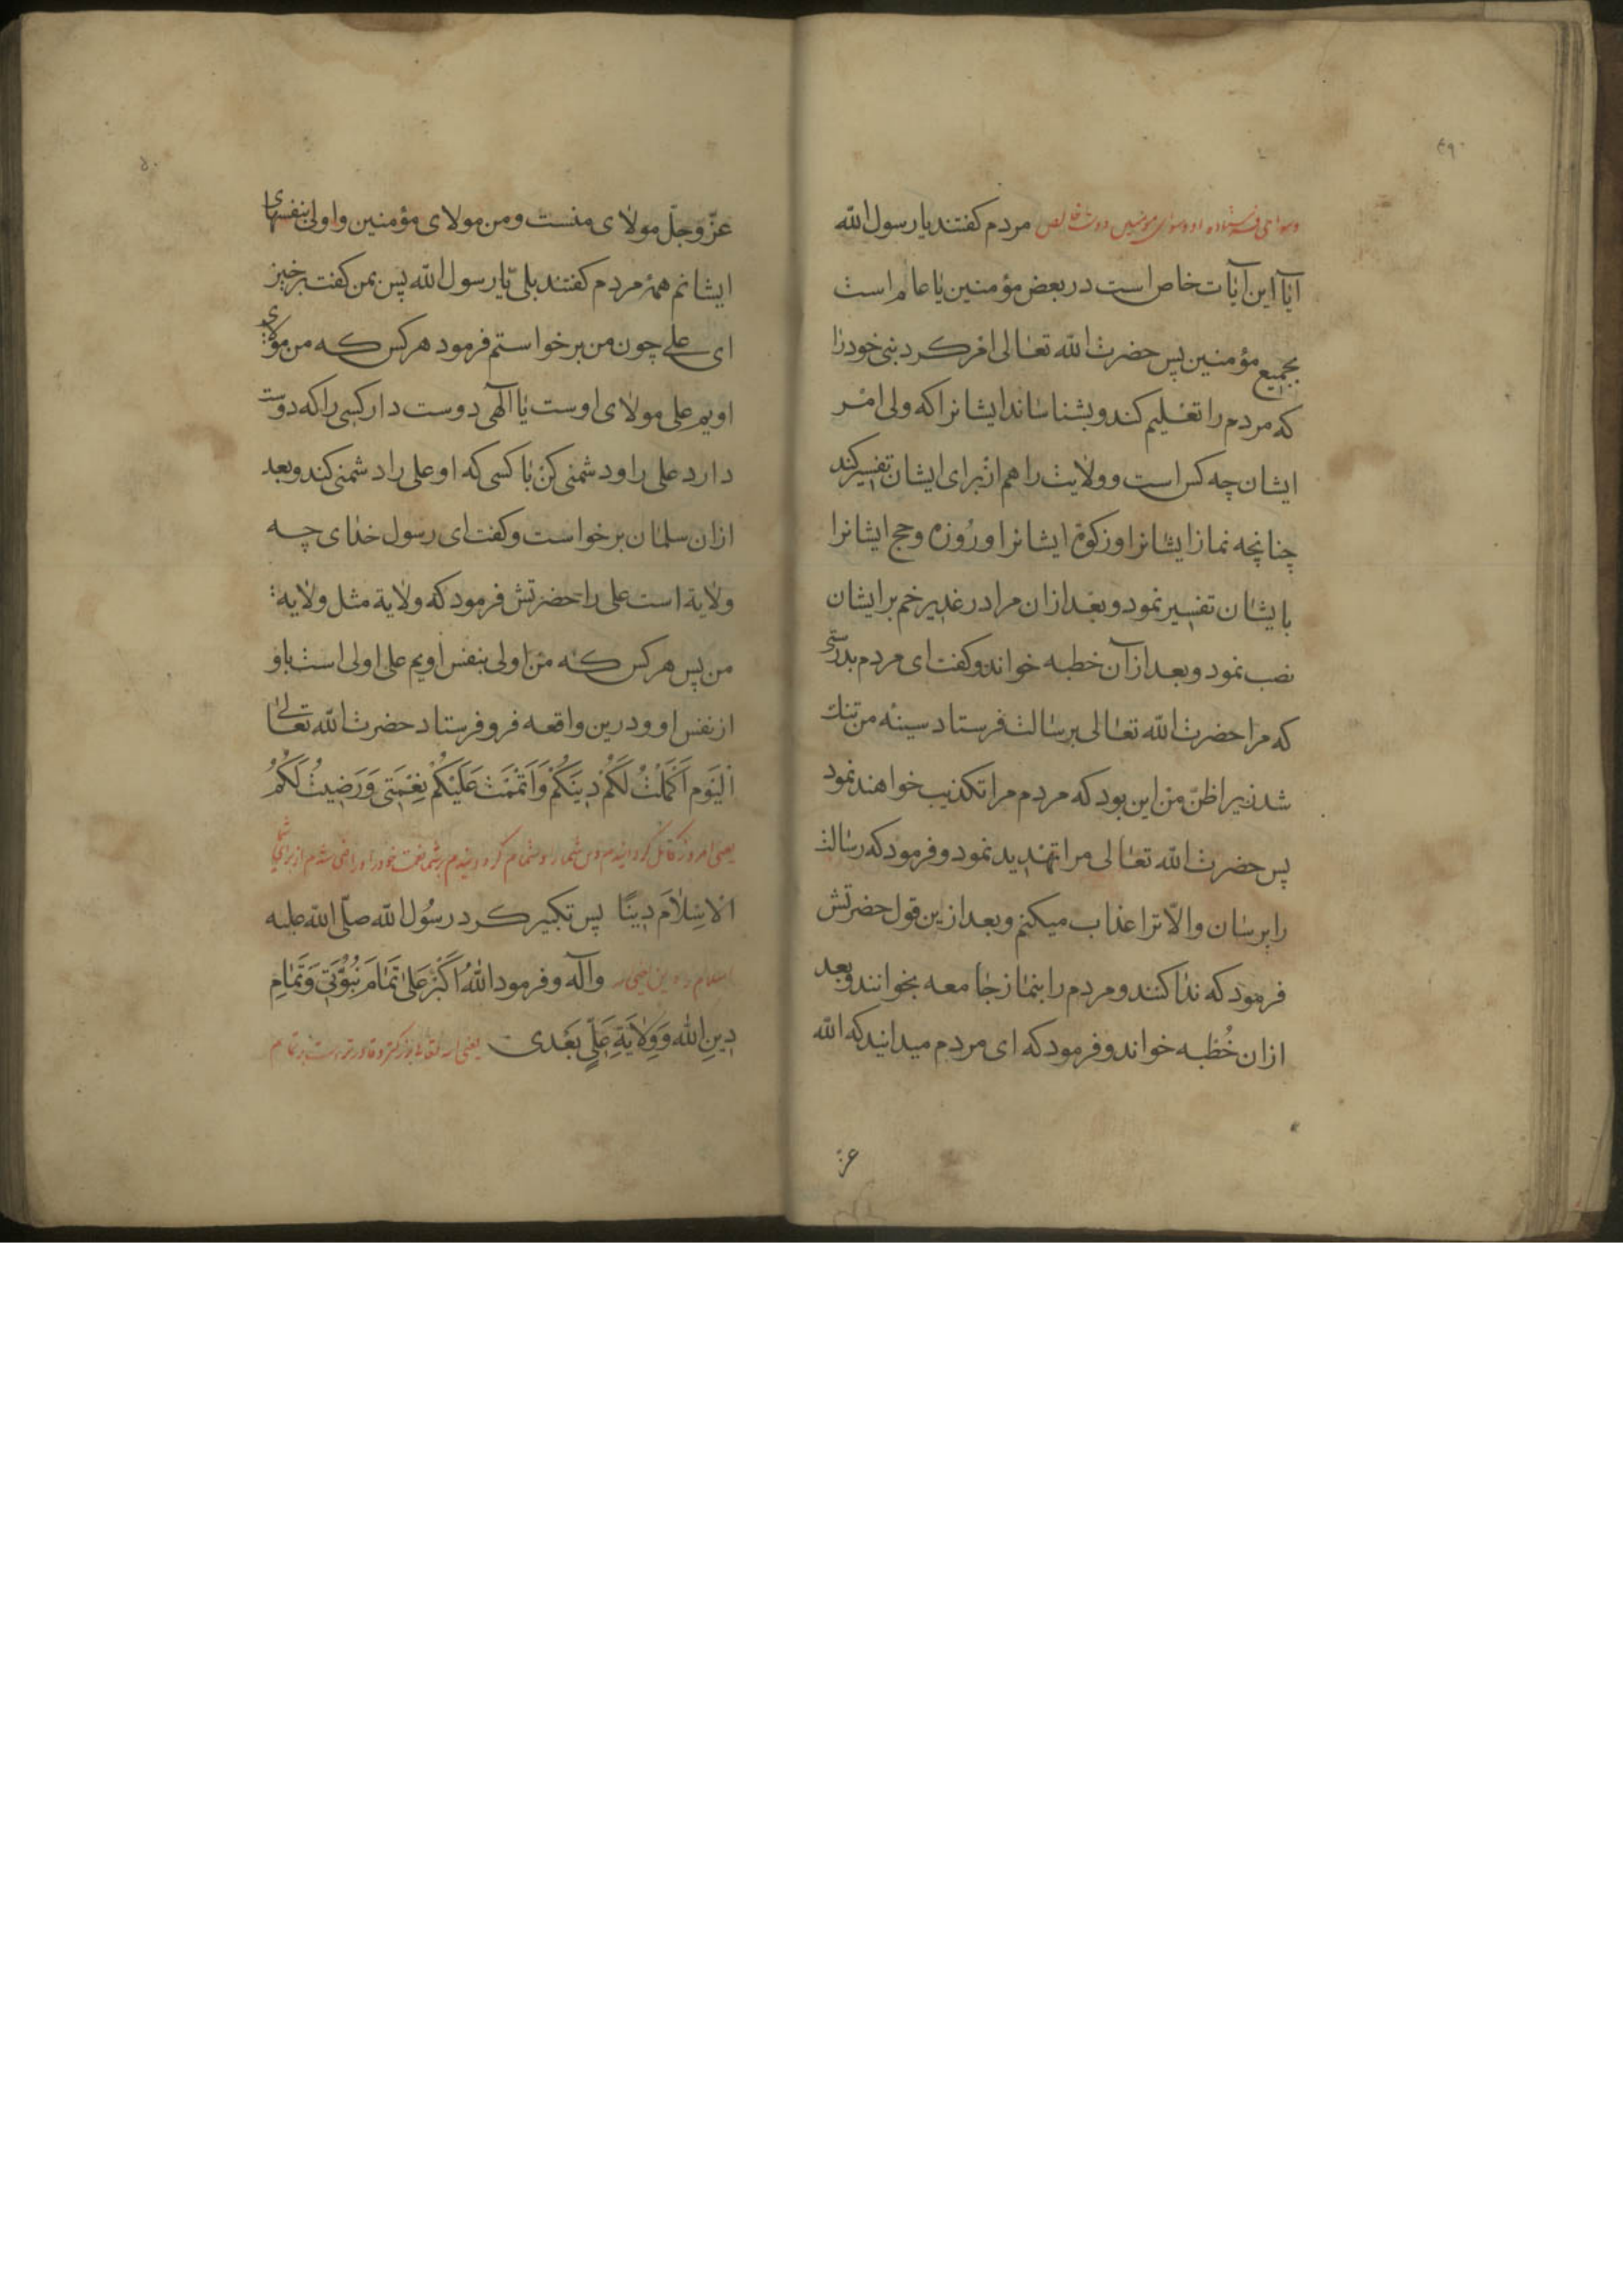 ۴۹
مردم کفتند یا رسول الله
آیا این آیات خاص است در بعض مؤمنین یا عام است
بجمیع مؤمنین پس حضرت الله تعالی امر کرد نبی خود را
که مردم را تعلیم کند و بشناساند ایشانرا که ولی امر
ایشان چه کس است و ولایت را هم از برای ایشان تفسیر کند
چنانچه نماز ایشانرا و زکوة ایشانرا و روزه و حج ایشانرا
بایشان تفسیر نمود و بعد ازان مرا در غدیر خم بر ایشان
نصب نمود و بعد از آن خطبه خواند و کفت ای مردم بدرستی
که مرا حضرت الله تعالی برسالت فرستاد سینه من تنك
شد زیرا ظن من این بود که مردم مرا تکذیب خواهند نمود
پس حضرت الله تعالی مرا تهدید نمود و فرمود که رسالت
را برسان والّا ترا عذاب میکنم و بعد ازین قول حضرتش
فرمود که ندا کنند و مردم را بنماز جامعه بخوانند و بعد
ازان خُطبه خواند و فرمود که ای مردم میدانید که الله
عزّ
۵۰
عزّ وجلّ مولای منست و من مولای مؤمنین و اولی بنفسهای
ایشانم همۀ مردم کفتند بلی یا رسول الله پس بمن کفت برخیز
ای علی چون من برخواستم فرمود هر کس که من مولای
اویم علی مولای اوست یا آلهی دوست دار کسی را که دوست
دارد علی را و دشمنی کن با کسی که او علی را دشمنی کند و بعد
ازان سلمان برخواست و کفت ای رسول خدای چه
ولایة است علی را حضرتش فرمود که ولایة مثل ولایه
من پس هر کس که من اولی بنفس اویم علی اولی است باو
از نفس او و درین واقعه فرو فرستاد حضرت الله تعالی
اَلْیَوم اَکْمَلْتُ لَکُمْ دِینَکُمْ وَاَتْمَمْتُ عَلَیْکُمْ نِعْمَتِی وَرَضِیتُ لَکُمُ
یعنی امروز کامل کردانیدم دین شما را و تمام کردانیدم بر شما نعمت خود را و راضی شدم از برای شما
الْاِسْلَامَ دِینًا پس تکبیر کرد رسُول الله صلّی الله علیه
وآله و فرمود اللهُ اَکْبَرُ عَلیٰ تَمَامِ نُبُوَّتِی وَتَمَامِ
دِینِ الله وَوِلَایَةِ عَلِیٍّ بَعْدی